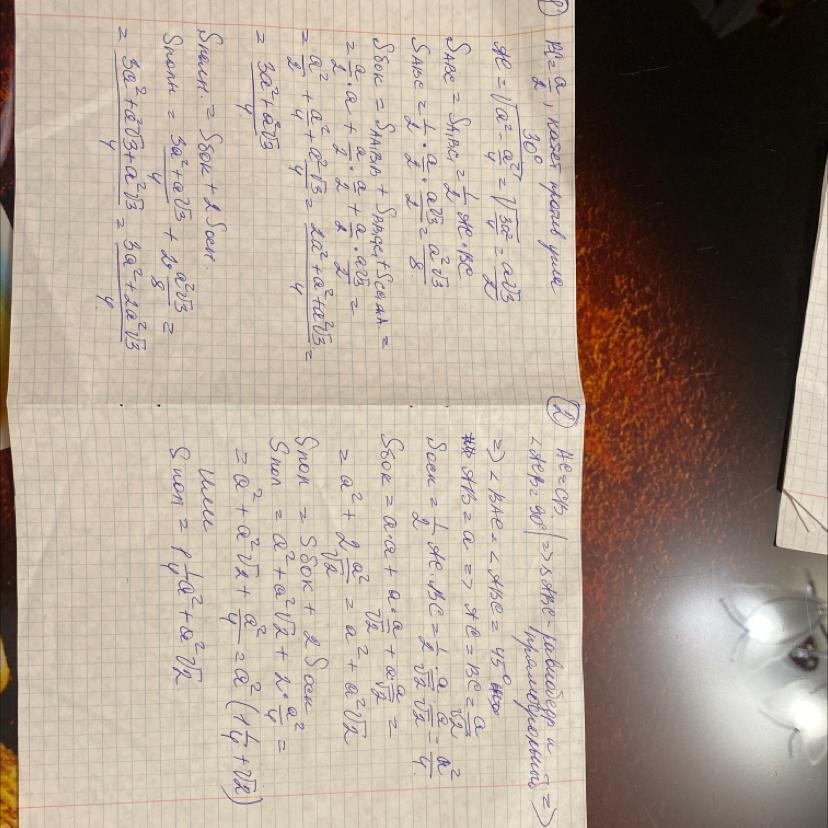 1) BC = a/2, катет против угла
30°
AC = √(a² - a²/4) = √(3a²/4) = a√3/2
SABC = SA₁B₁C₁ = 1/2 AC · BC
SABC = 1/2 · a/2 · a√3/2 = a²√3/8
Sбок = SAA₁B₁B + SBB₁C₁C + SCC₁A₁A =
= a/2 · a + a/2 · a/2 + a/2 · a√3/2 =
= a²/2 + a²/4 + a²√3/4 = (2a² + a² + a²√3)/4 =
= (3a² + a²√3)/4
Sполн. = Sбок + 2Sосн.
Sполн = (3a² + a²√3)/4 + 2 · a²√3/8 =
= (3a² + a²√3 + a²√3)/4 = (3a² + 2a²√3)/4
2) AC = CB
∠ACB = 90° | => ΔABC - равнобедр и
прямоугольный =>
=> ∠BAC = ∠ABC = 45°
AB = a => AC = BC = a/√2
Sосн = 1/2 AC · BC = 1/2 · a/√2 · a/√2 = a²/4
Sбок = a·a + a·a/√2 + a·a/√2 =
= a² + 2a²/√2 = a² + a²√2
Sпол = Sбок + 2Sосн
Sпол = a² + a²√2 + 2 · a²/4 =
= a² + a²√2 + a²/4 = a²(1 1/4 + √2)
или
Sпол = 1 1/4 a² + a²√2